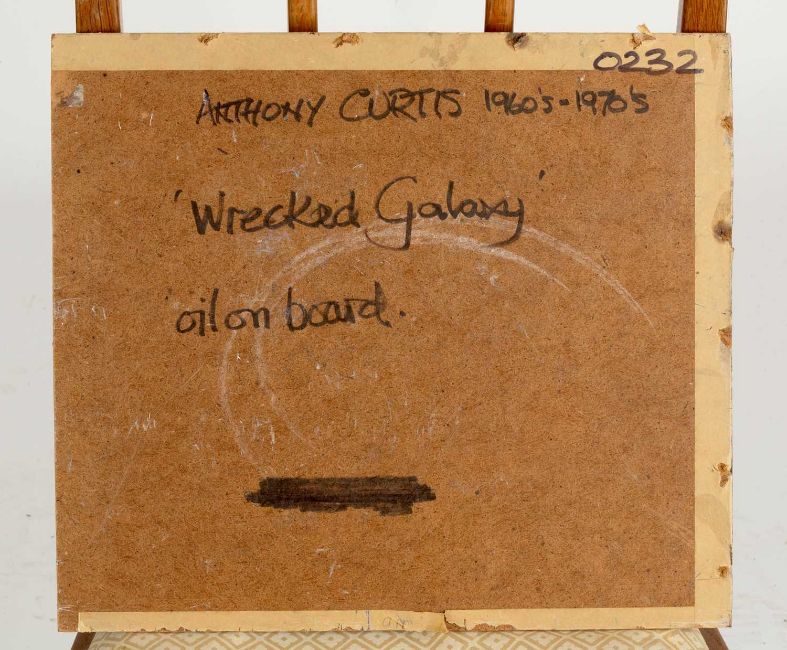 0232
ANTHONY CURTIS 1960's-1970's
'Wrecked Galaxy'
oil on board.